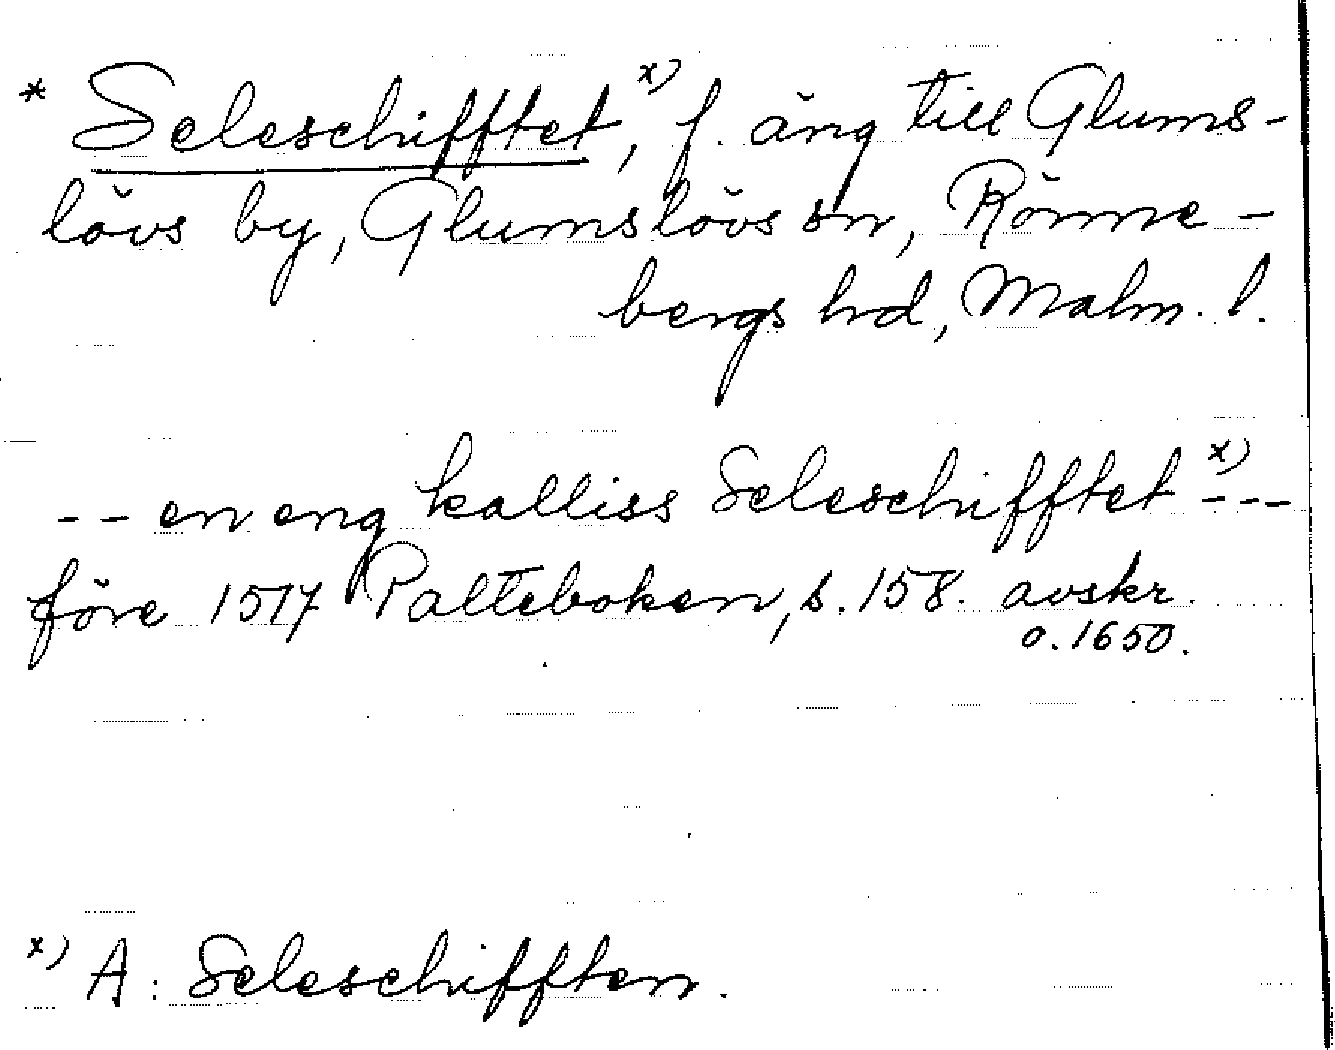 * Seleschifftet, x) f. äng till Glums-
lövs by, Glumslövs sn, Rönne-
bergs hrd, Malm. l.
-- en eng kalliss Seleschifftet x) ---
före 1517 Palteboken, s. 158. avskr.
o. 1650.
x) A: Seleschifften.